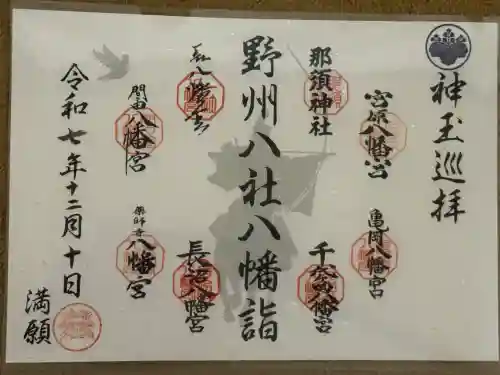 神玉巡拝
宮原八幡宮
亀岡八幡宮
那須神社
千渡八幡宮
野州八社八幡詣
八幡宮
長沼八幡宮
間中八幡宮
薬師寺八幡宮
令和七年十二月十日
満願